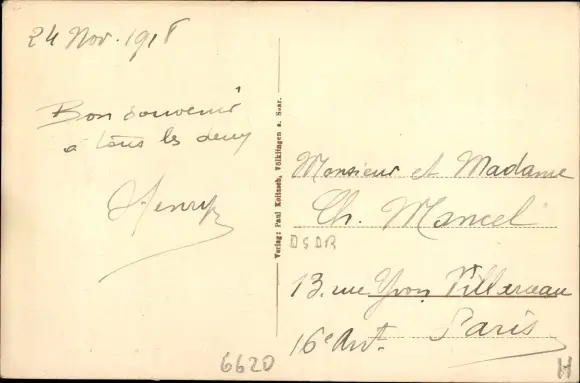 24 Nov. 1918
Bon souvenir
à tous les deux
Henry
Verlag: Paul Koltzsch, Völklingen a. Saar.
Monsieur et Madame
Ch. Mancel
DSDR
13. rue Yvon Villarceau
Paris
16e Arrt.
6620
H